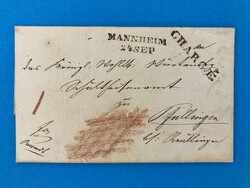 MANNHEIM
24 SEP
CHARGÉ.
An
das Königl. Wohllb.
Schultheisenamt
zu
Pfullingen
bei Reutlingen